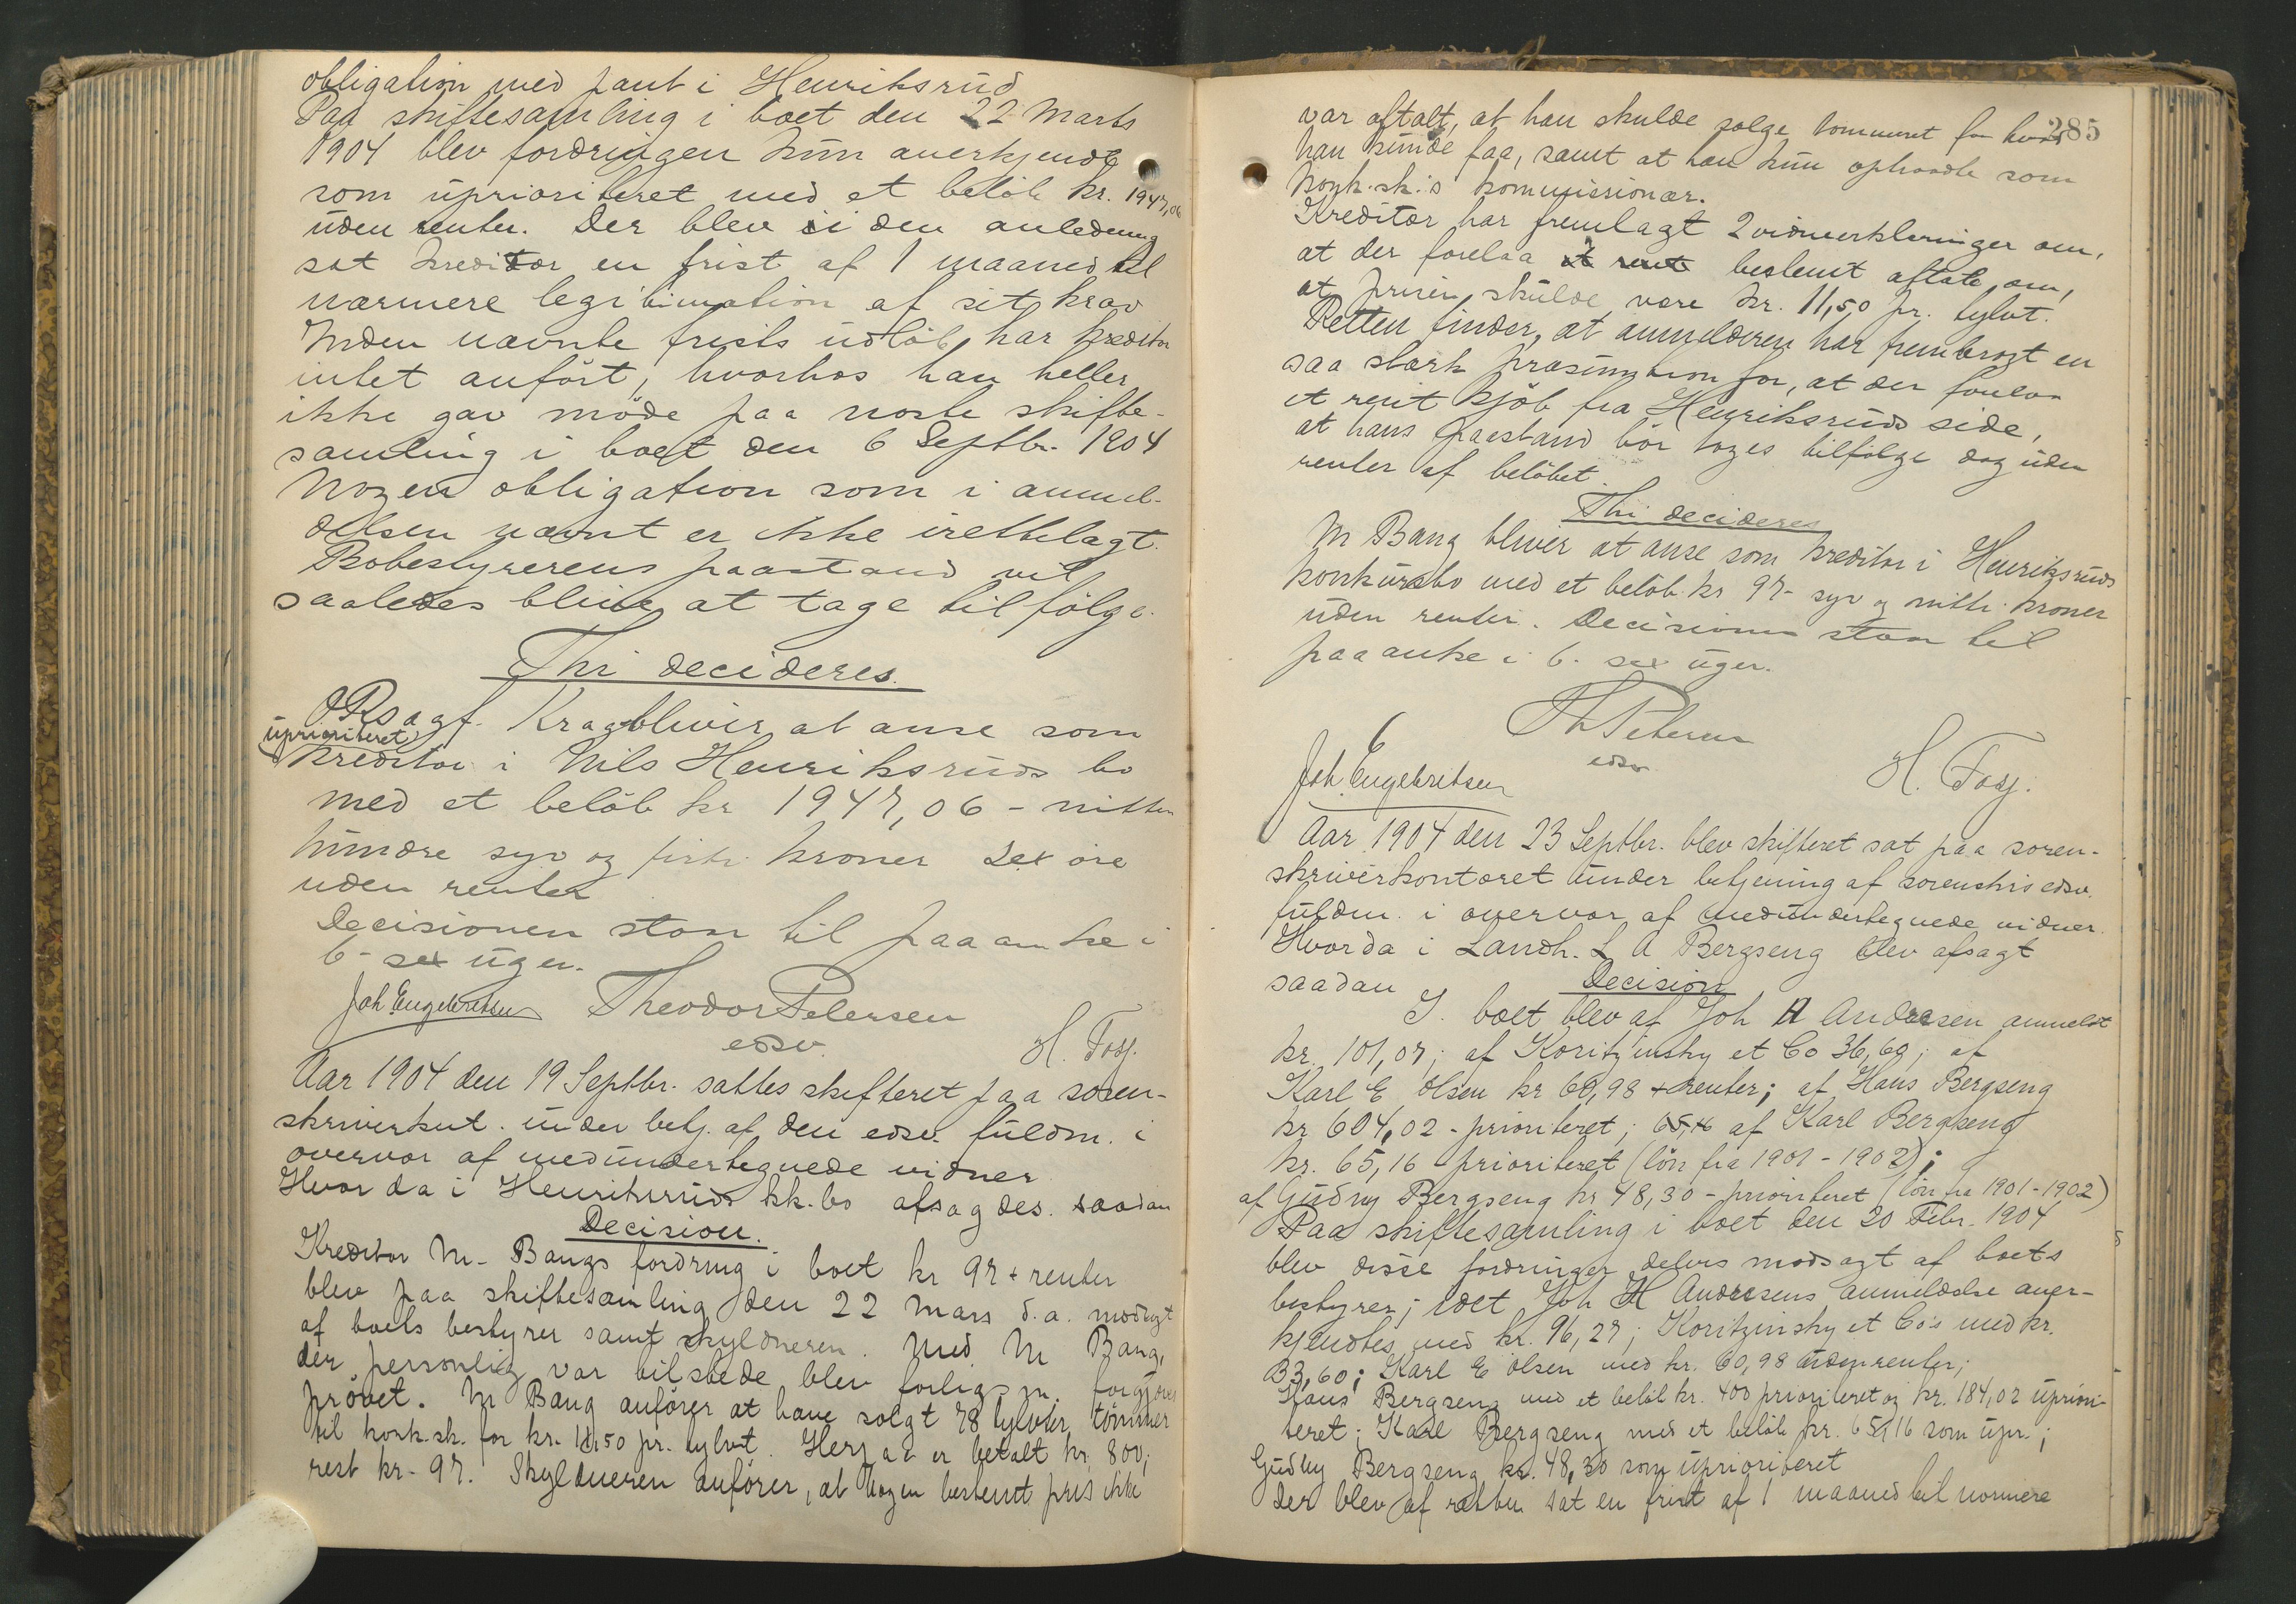 obligation med pant i Henriksrud
Paa skiftesamling i boet den 22 Marts
1904 blev fordringen kun anerkjendt
som uprioriteret med et beløb kr. 1947,06
uden renter. Der blev i den anledning
sat kreditor en frist af 1 maaned til
nærmere legitimation af sit krav
Inden nævnte frists udløb har kreditor
intet anført, hvorhos han heller
ikke gav møde paa næste skifte-
samling i boet den 6 Septbr. 1904
Nogen obligation som i anmel-
delsen nævnt er ikke irettelagt.
Bobestyrerens paastand vil
saaledes blive at tage tilfølge.
Thi decideres.
ORsagf. Krag bliver at anse som
uprioriteret
kreditor i Nils Henriksruds bo
med et beløb kr 1947,06 - nitten
hundre syv og firti kroner sex øre
uden renter
Decisionen staar til paaanke i
6 - sex uger.
Joh Engebretsen Theodor Petersen
edsv. H. Fosj.
Aar 1904 den 19 Septbr. sattes skifteret paa soren-
skriverknt. under betj. af den edsv. fuldm. i
overvær af medundertegnede vidner
Hvor da i Henriksruds kk.bo afsagdes saadan
Decision.
Kreditor M. Bangs fordring i boet kr 97 + renter
blev paa skiftesamling den 22 mars d.a. modsagt
af boets bestyrer samt skyldneren. Med M Bang,
der personlig var tilstede blev forlig m. forgjæves
prøvet. M Bang anfører at have solgt 78 tylvter tømmer
til konk.sk. for kr. 11,50 pr. tylvt. Herpaa er betalt kr. 800;
rest kr. 97. Skyldneren anfører, at nogen bestemt pris ikke
285
var aftalt, at han skulde sælge tømmeret for hvad
han kunde faa, samt at han kun optraadte som
konk.sk.'s kommissionær.
Kreditor har fremlagt 2 vidneerklæringer om,
at der forelaa bestemt aftale om,
at prisen skulde være kr. 11,50 pr. tylvt.
Retten finder, at anmelderen har frembragt en
saa stærk præsumtion for, at der forelaa
et rent kjøb fra Henriksruds side,
at hans paastand bør tages tilfølge dog uden
renter af beløbet.
Thi decideres
M Bang bliver at anse som kreditor i Henriksruds
konkursbo med et beløb kr 97 - syv og nitti kroner
uden renter. Decisionen staar til
paaanke i 6. sex uger.
Th Petersen
edsv.
Joh. Engebretsen H. Fosj.
Aar 1904 den 23 Septbr. blev skifteret sat paa soren-
skriverkontoret under betjening af sorenskr's edsv.
fuldm. i overvær af medundertegnede vidner.
Hvorda i Landh. L A Bergseng blev afsagt
saadan Decision
I boet blev af Joh H Andresen anmeldt
kr. 101,07; af Koritzinsky et Co 36,60; af
Karl E Olsen kr 60,98 + renter; af Hans Bergseng
kr 604,02 - prioriteret; af Karl Bergseng
kr. 65,16 - prioriteret (løn fra 1901 - 1902);
af Gudny Bergseng kr 48,30 - prioriteret (løn fra 1901-1902)
Paa skiftesamling i boet den 20 Febr. 1904
blev disse fordringer delvis modsagt af boets
bestyrer; idet Joh H Andresens anmeldelse aner-
kjendtes med kr. 96,27; Koritzinsky et Co's med kr.
33,60; Karl E Olsen med kr. 60,98 uden renter;
Hans Bergseng med et beløb kr. 400 prioriteret og kr. 184,02 upriori-
teret; Karl Bergseng med et beløb kr. 65,16 som upr.;
Gudny Bergseng kr. 48,30 som uprioriteret
der blev af retten sat en frist af 1 maaned til nærmere